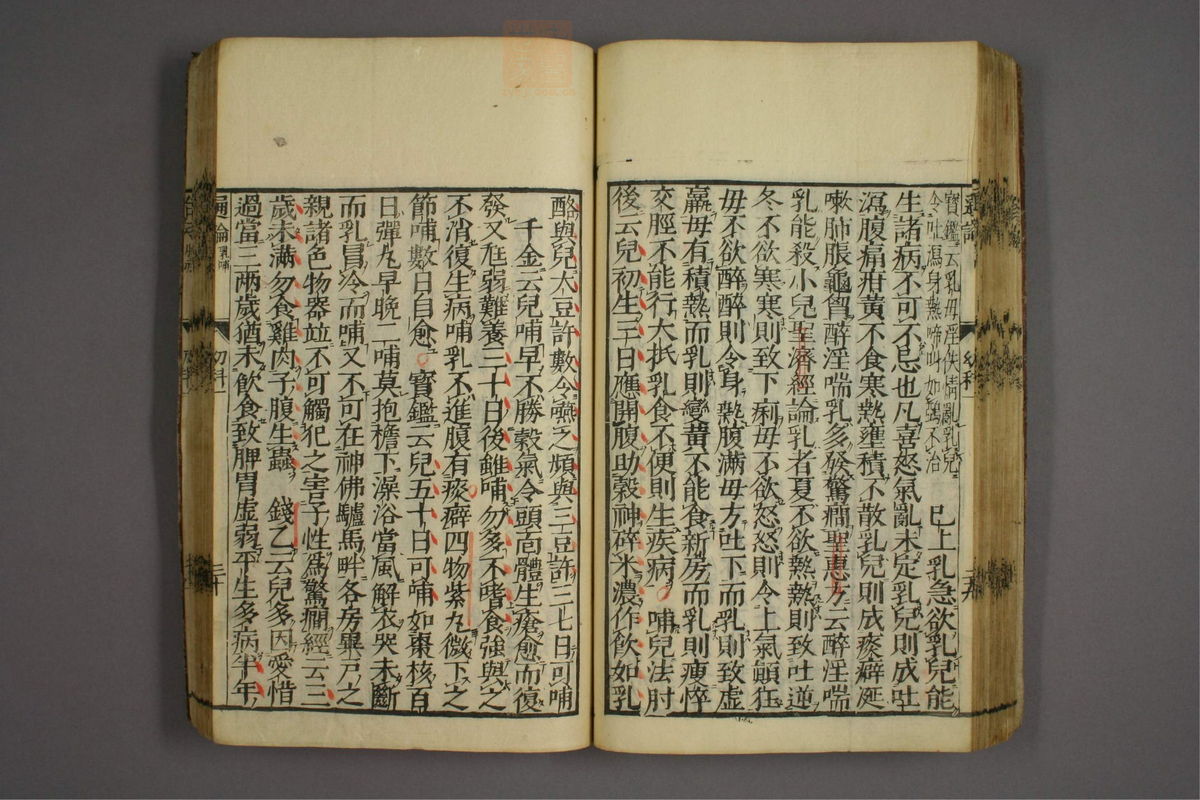 寶鑑云乳母淫佚情亂乳兒
令吐瀉身熱啼叫如鴉不治
巳上乳急欲乳兒能
生諸病不可不忌也凡喜怒氣亂未定乳兒則成吐
瀉腹痛疳黃不食寒熱壅積不散乳兒則成痰癖涎
嗽肺脹龜胷醉淫喘乳多發驚癎聖惠方云醉淫喘
乳能殺小兒聖濟經論乳者夏不欲熱熱則致吐逆
冬不欲寒寒則致下痢毋不欲怒怒則令上氣顛狂
毋不欲醉醉則令身熱腹滿毋方吐下而乳則致虛
羸毋有積熱而乳則變黃不能食新房而乳則瘦悴
交脛不能行大抵乳食不便則生疾病 哺兒法肘
後云兒初生三日應開腹助穀神碎米濃作飲如乳
酪與兒大豆許數令嚥之頻與三豆許三七日可哺
千金云兒哺早不勝穀氣令頭面體生瘡愈而復
發又尫弱難養三十日後雖哺勿多不嗜食強與之
不消復生病哺乳不進腹有痰癖四物紫丸微下之
節哺數日自愈 寶鑑云兒五十日可哺如棗核百
日彈丸早晚二哺莫抱檐下澡浴當風解衣哭未斷
而乳冒冷而哺又不可在神佛驢馬畔各房異尸之
親諸色物器並不可觸犯之害子性爲驚癎經云三
歲未滿勿食雞肉子腹生蟲 錢乙云兒多因愛惜
過當三兩歲猶未飲食致脾胃虛弱平生多病半年
通論
乳哺
幼科一
三十